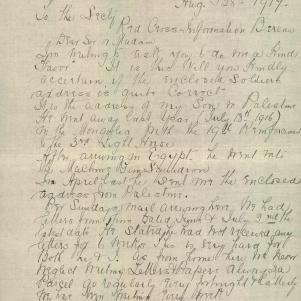 Aug 28th 1917.
To the Secty
Red Cross Information Bureau
Dear Sir or Madam
I'm writing to ask you to do me a kind
favor. It is this Will you kindly
ascertain if the enclosed Soldiers
address is quite Correct
It is the address of my Son in Palestine
He went away last year (July 1916)
in the Mongolia with the 19th Reinforcements
to the 3rd Light Horse
After arriving in Egypt he went into
the Machine Gun Squadron
In April last he sent me the enclosed
address from Palestine.
Per Sundays mail arriving here, We had
letters from him dated June & July 2nd the
latest date He states he had not received any
letters for 10 weeks This is very hard for
Both he & I. As from home here we never
neglect writing Letters & Papers always a
Parcel go regularly every fortnightly